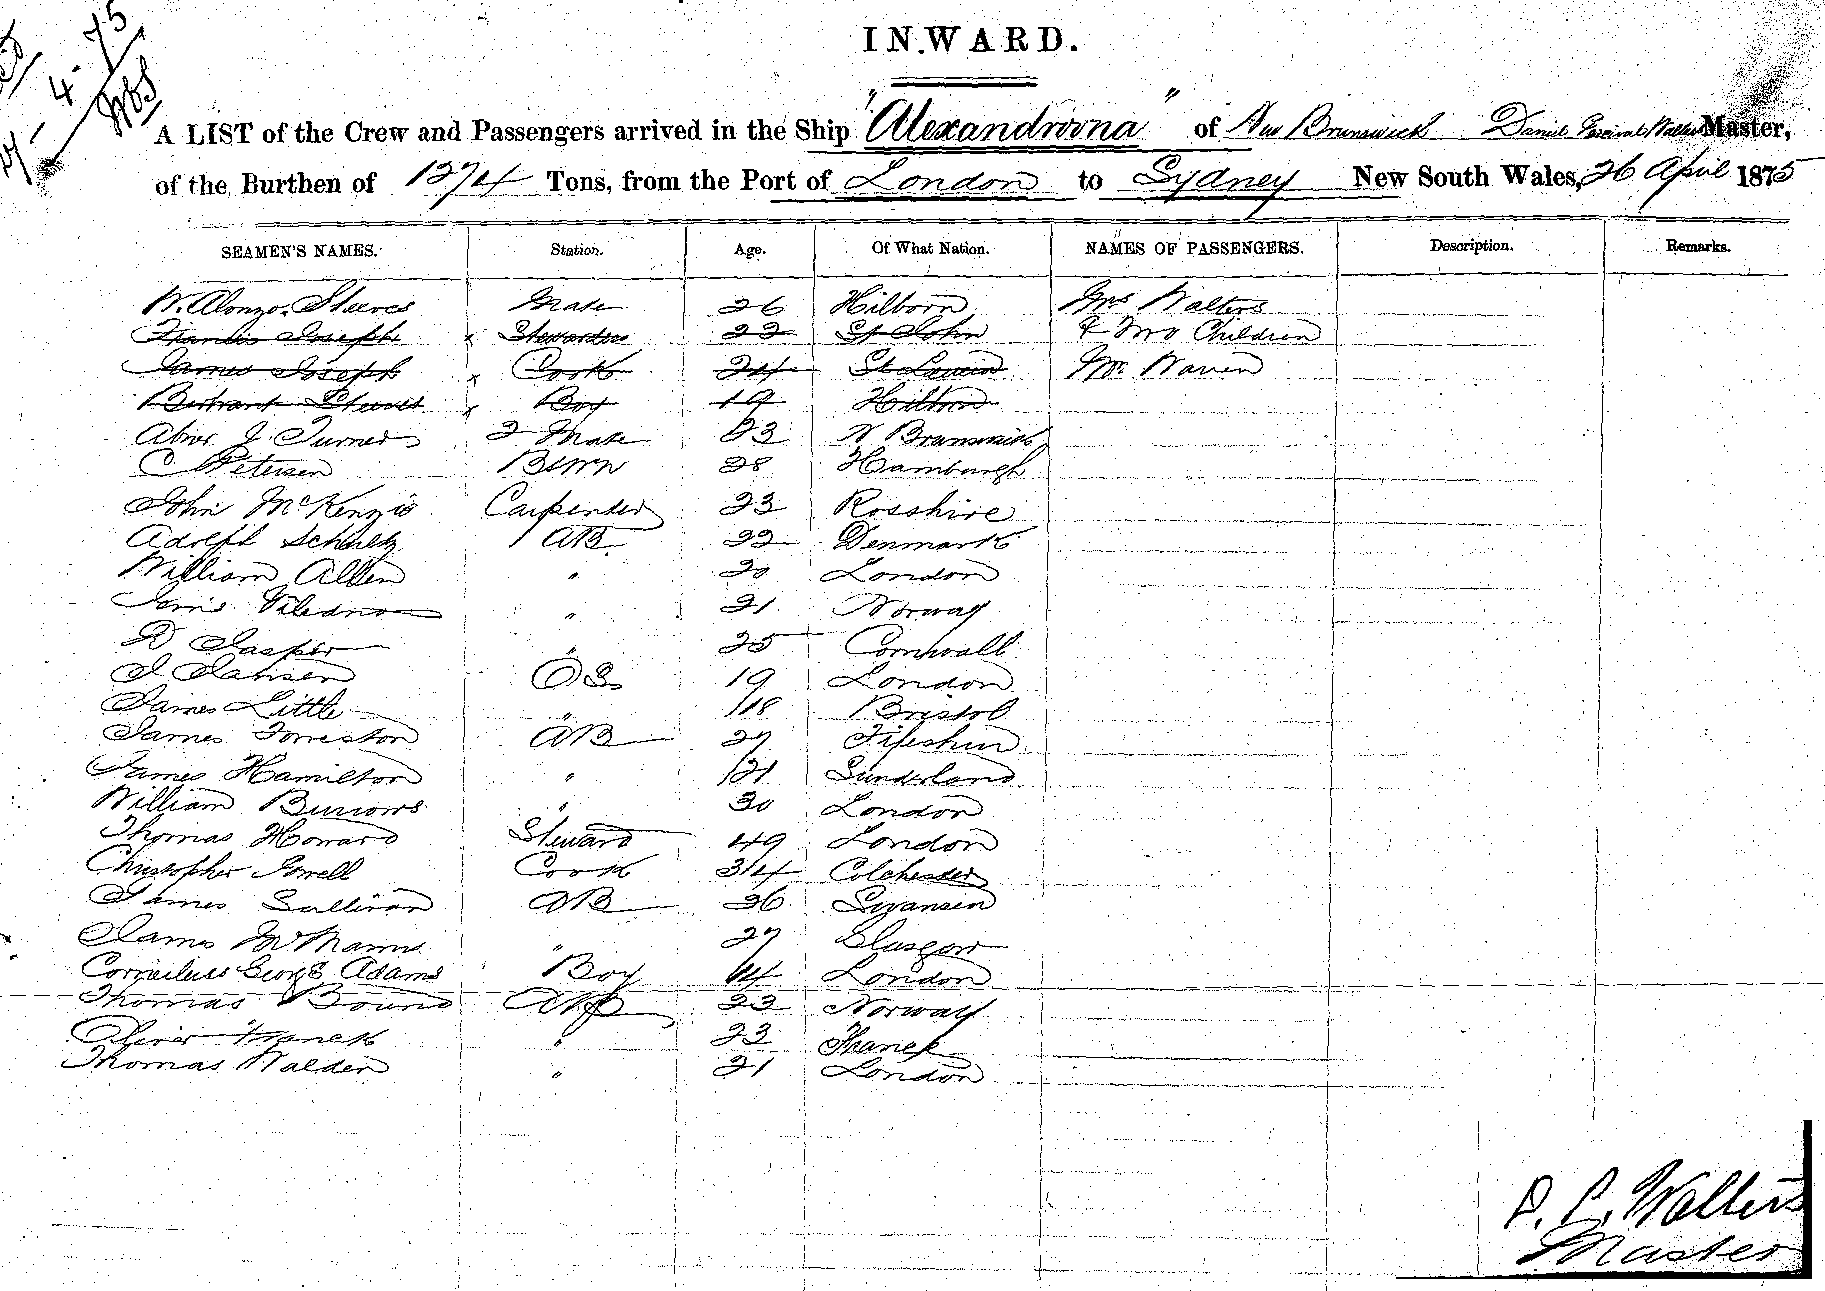 4-75
INWARD.
A LIST of the Crew and Passengers arrived in the Ship "Alexandrovna" of New Brunswick Daniel Percival Walters Master,
of the Burthen of 1274 Tons, from the Port of London to Sydney New South Wales, 26 April 1875
SEAMEN'S NAMES. Station. Age. Of What Nation. NAMES OF PASSENGERS. Description. Remarks.
W. Alonzo. Steeves Mate 26 Hilborn Mrs Walters
Francis Joseph x Stewardess 22 St John & Two Children
James Joseph x Cook 24 St Mr Warren
Steeves x Boy 19 Hilborn
Abner J. Turner 2 Mate 23 N Brunswick
C Petersen BSWn 28 Hamburgh
John McKenzie Carpenter 23 Rosshire
Adolph Schultz AB 22 Denmark
William Allen " 20 London
" 21 Norway
D Jasper " 25 Cornwall
J Jansen OS 19 London
James Little " 18 Bristol
James Forreston AB 27 Fifeshire
James Hamilton " 21 Sunderland
William Burrows " 30 London
Thomas Howard Steward 49 London
Christopher Cook 34 Colchester
James Sullivan AB 26 Swansea
James McManus " 27 Glasgow
Cornelius George Adams Boy 14 London
Thomas Bound AB 22 Norway
Franck " 23
Thomas Walden " 21 London
D. P. Walters
Master